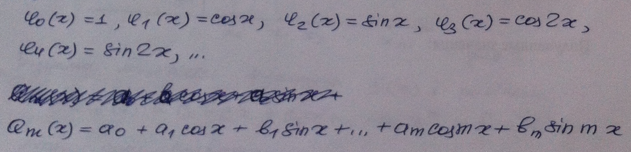 φ₀(x)=1, φ₁(x)=cosx, φ₂(x)=sinx, φ₃(x)=cos2x,
φ₄(x)=sin2x, ...
Qₘ(x)=a₀+a₁cosx+b₁sinx+...+aₘcosmx+bₘsinmx